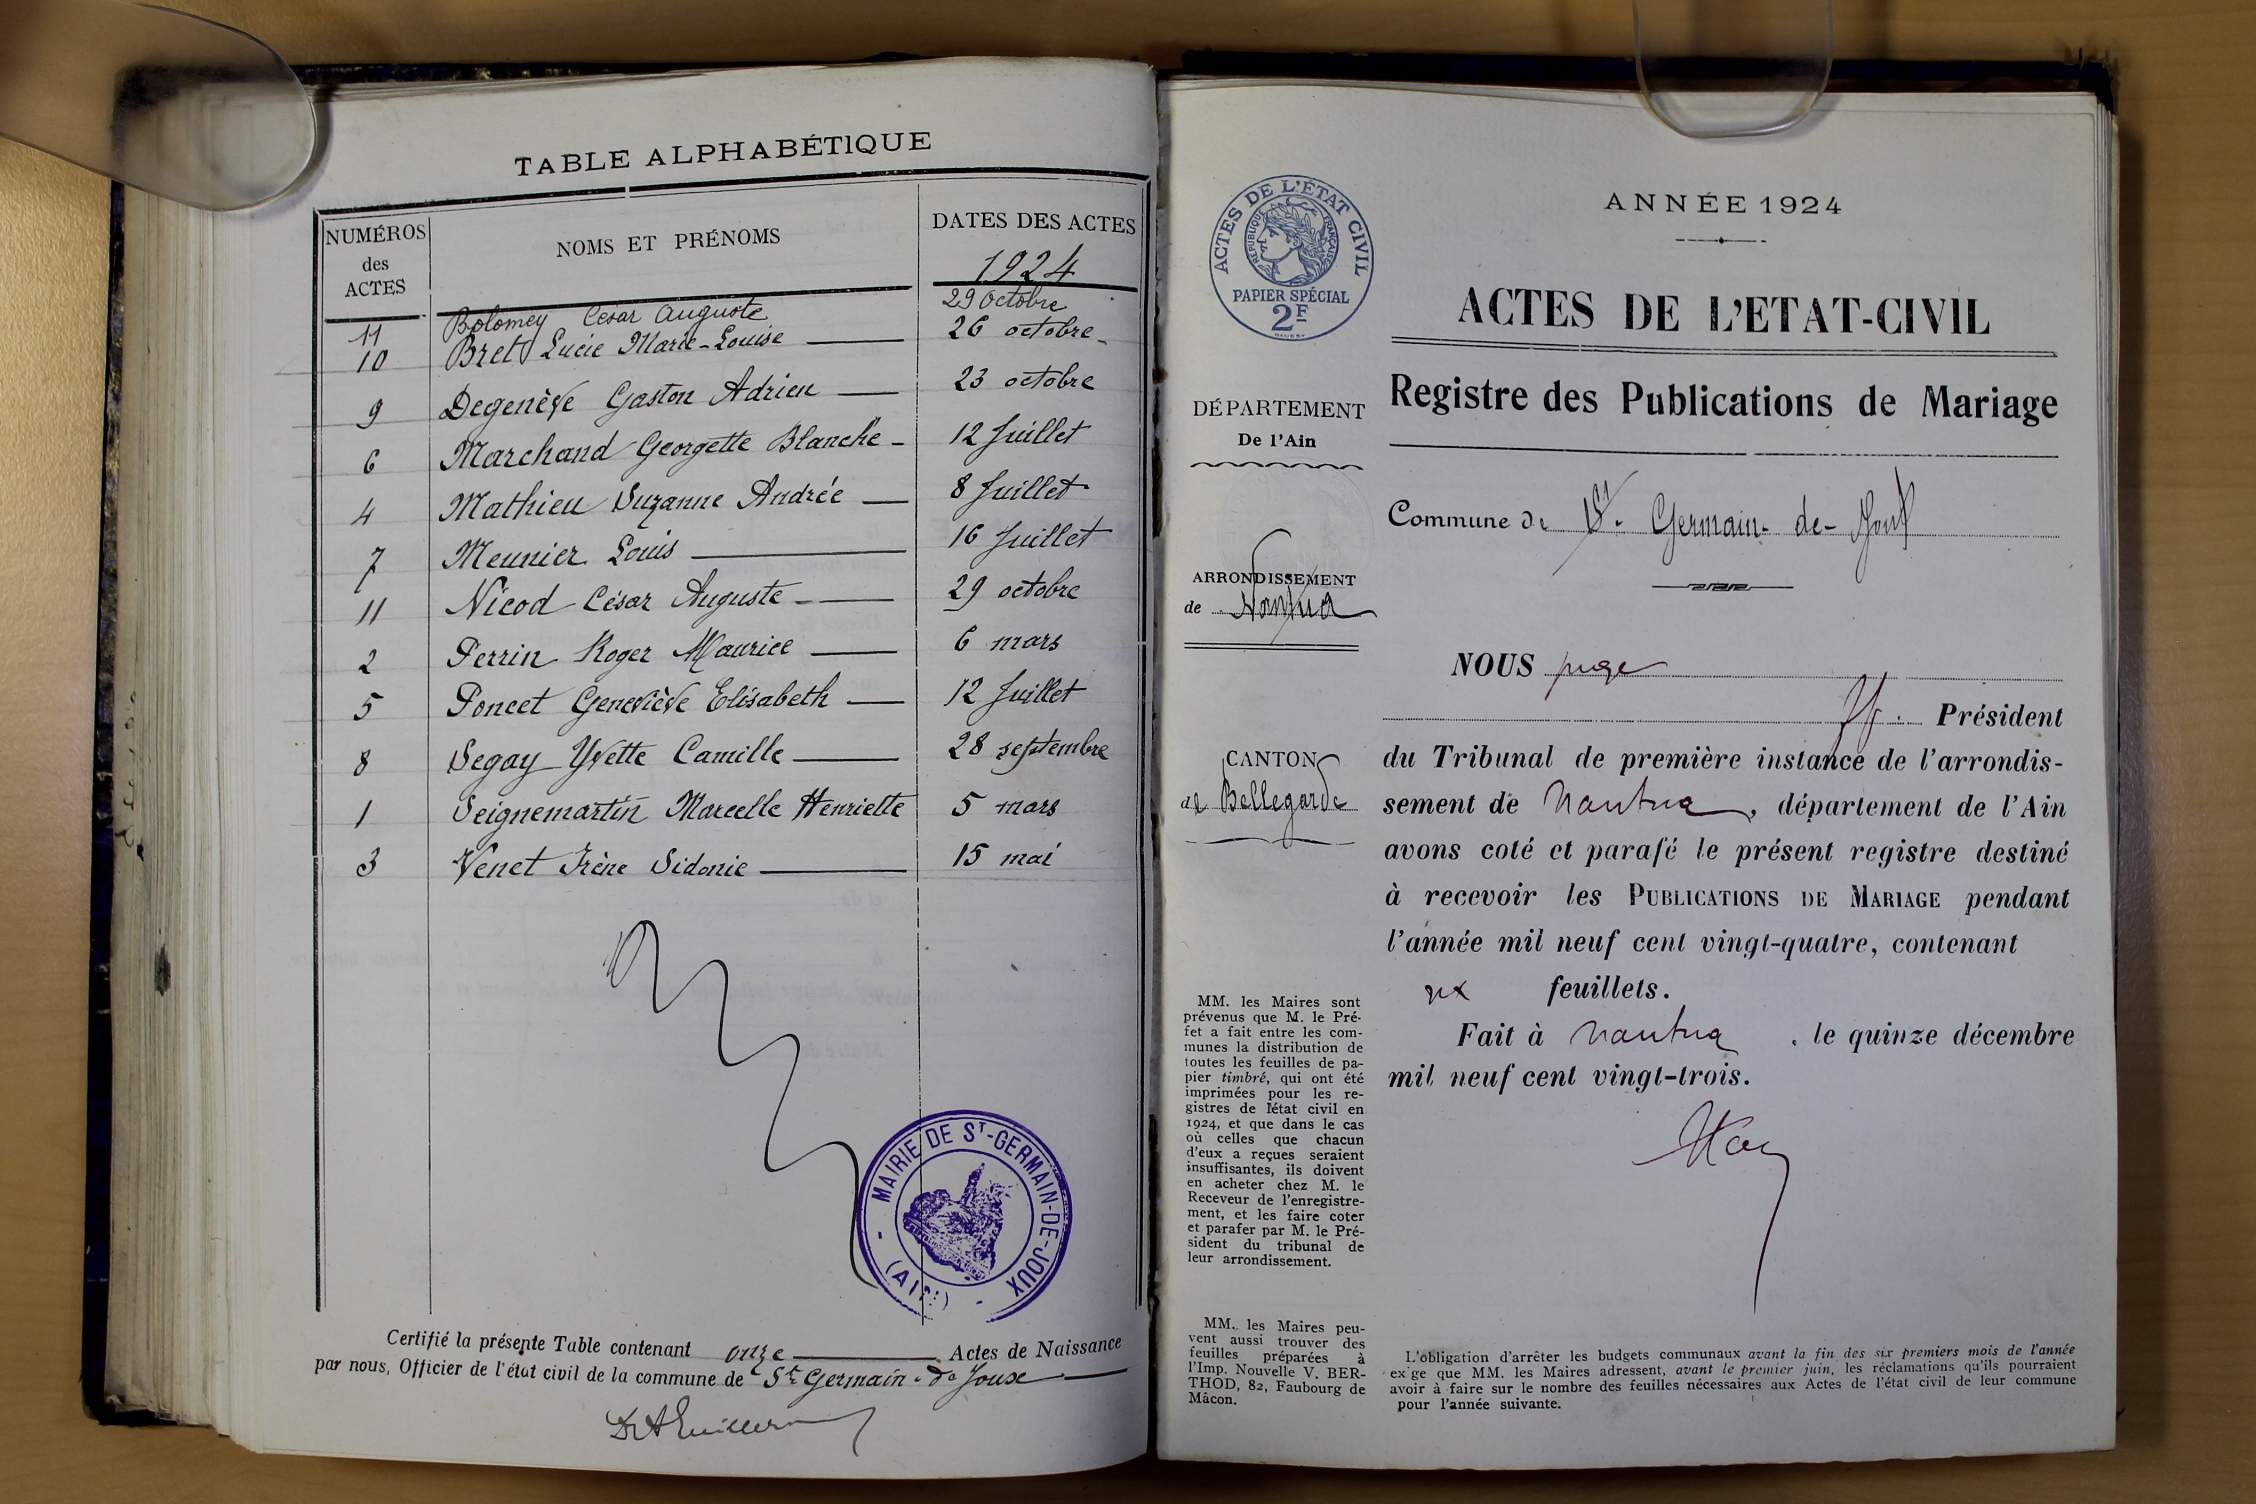 TABLE ALPHABÉTIQUE
NUMÉROS
des
ACTES
NOMS ET PRÉNOMS
DATES DES ACTES
1924
11 Bolomey César Auguste 29 Octobre
10 Bret Lucie Marie-Louise 26 octobre
9 Degenève Gaston Adrien 23 octobre
6 Marchand Georgette Blanche 12 Juillet
4 Mathieu Suzanne Andrée 8 Juillet
7 Meunier Louis 16 Juillet
11 Nicod César Auguste 29 octobre
2 Perrin Roger Maurice 6 mars
5 Poncet Geneviève Elisabeth 12 Juillet
8 Segay Yvette Camille 28 septembre
1 Seignemartin Marcelle Henriette 5 mars
3 Venet Irène Sidonie 15 mai
MAIRIE DE ST-GERMAIN-DE-JOUX
(AIN)
Certifié la présente Table contenant onze Actes de Naissance
par nous, Officier de l'état civil de la commune de St Germain-de Joux
ANNÉE 1924
ACTES DE L'ÉTAT CIVIL
RÉPUBLIQUE FRANÇAISE
PAPIER SPÉCIAL
2F
ACTES DE L'ETAT-CIVIL
Registre des Publications de Mariage
DÉPARTEMENT
De l'Ain
Commune de St. Germain-de-Joux
ARRONDISSEMENT
de Nantua
CANTON
de Bellegarde
NOUS juge
ff. Président
du Tribunal de première instance de l'arrondis-
sement de Nantua, département de l'Ain
avons coté et parafé le présent registre destiné
à recevoir les PUBLICATIONS DE MARIAGE pendant
l'année mil neuf cent vingt-quatre, contenant
six feuillets.
Fait à Nantua, le quinze décembre
mil neuf cent vingt-trois.
MM. les Maires sont
prévenus que M. le Pré-
fet a fait entre les com-
munes la distribution de
toutes les feuilles de pa-
pier timbré, qui ont été
imprimées pour les re-
gistres de l'état civil en
1924, et que dans le cas
où celles que chacun
d'eux a reçues seraient
insuffisantes, ils doivent
en acheter chez M. le
Receveur de l'enregistre-
ment, et les faire coter
et parafer par M. le Pré-
sident du tribunal de
leur arrondissement.
MM. les Maires peu-
vent aussi trouver des
feuilles préparées à
l'Imp. Nouvelle V. BER-
THOD, 82, Faubourg de
Mâcon.
L'obligation d'arrêter les budgets communaux avant la fin des six premiers mois de l'année
exige que MM. les Maires adressent, avant le premier juin, les réclamations qu'ils pourraient
avoir à faire sur le nombre des feuilles nécessaires aux Actes de l'état civil de leur commune
pour l'année suivante.